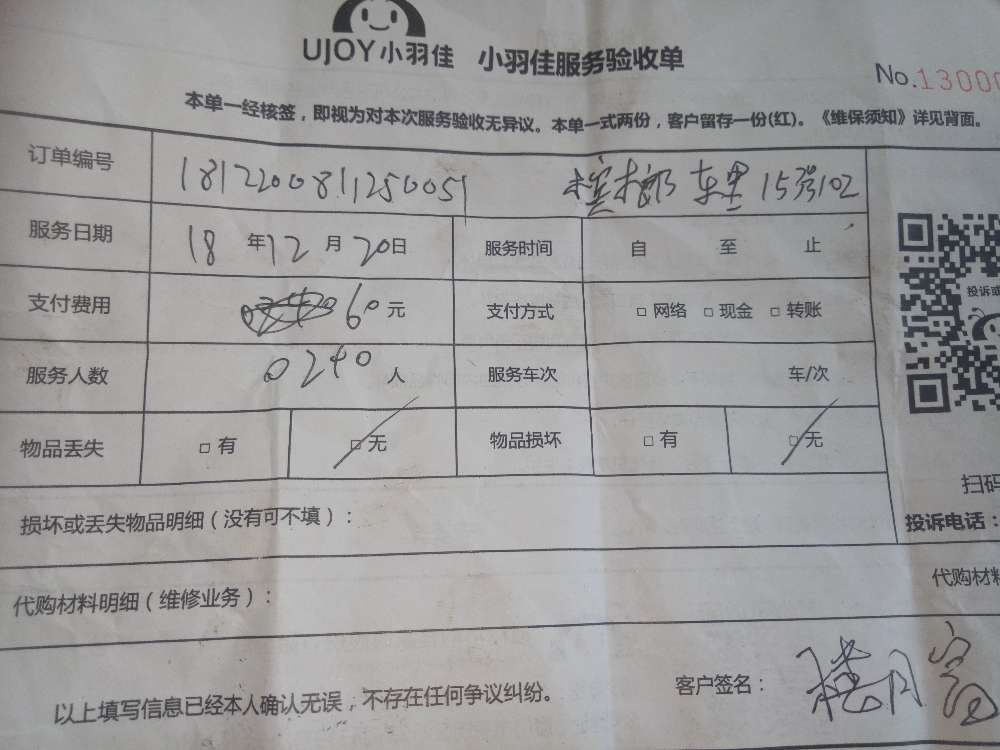 UJOY小羽佳 小羽佳服务验收单
No.13000
本单一经核签，即视为对本次服务验收无异议。本单一式两份，客户留存一份(红)。《维保须知》详见背面。
订单编号 181220081125005 15 102
服务日期 18年12月20日 服务时间 自 至 止
支付费用 60元 支付方式 □网络 □现金 □转账
服务人数 0240人 服务车次 车/次
物品丢失 □有 □无 物品损坏 □有 □无
投诉或
扫码
投诉电话：
损坏或丢失物品明细（没有可不填）：
代购材料明细（维修业务）： 代购材料
以上填写信息已经本人确认无误，不存在任何争议纠纷。 客户签名：